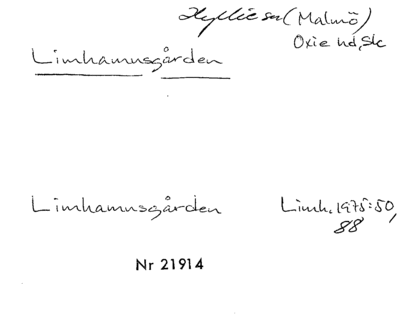 Hyllie sn (Malmö)
Oxie hd, Sk
Limhamnsgården
Limhamnsgården Limh. 1975:50,
88
Nr 21914